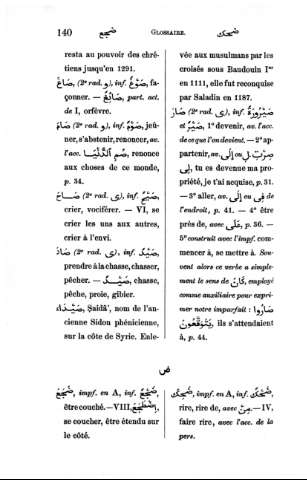 140 ضجع GLOSSAIRE. ضحك
resta au pouvoir des chré-
tiens jusqu'en 1291.
صَاغَ (2ᵉ rad. و), inf. صَوْغٌ, fa-
çonner. — صَائِغٌ, part. act.
de I, orfèvre.
صَامَ (2ᵉ rad. و), inf. صَوْمٌ, jeû-
ner, s'abstenir, renoncer, av.
l'acc. صُمِ الدُّنْيَا, renonce
aux choses de ce monde,
p. 34.
صَاحَ (2ᵉ rad. ى), inf. صَيْحٌ,
crier, vociférer. — VI, se
crier les uns aux autres,
crier à l'envi.
صَادَ (2ᵉ rad. ى), inf. صَيْدٌ,
prendre à la chasse, chasser,
pêcher. — صَيْدٌ, chasse,
pêche, proie, gibier.
صَيْدَاء, Ṣaidâ', nom de l'an-
cienne Sidon phénicienne,
sur la côte de Syrie. Enle-
vée aux musulmans par les
croisés sous Baudouin Iᵉʳ
en 1111, elle fut reconquise
par Saladin en 1187.
صَارَ (2ᵉ rad. ى), inf. صَيْرُورَةٌ
et صَيْرٌ, 1° devenir, av. l'acc.
de ce que l'on devient. — 2° ap-
partenir, av. إلى ou لِ, صِرْتِ
لِي, tu es devenue ma pro-
priété, je t'ai acquise, p. 31.
— 3° aller, av. إلى ou في de
l'endroit, p. 41. — 4° être
près de, avec على, p. 36. —
5° construit avec l'impf. com-
mencer à, se mettre à. Sou-
vent alors ce verbe a simple-
ment le sens de كَانَ, employé
comme auxiliaire pour expri-
mer notre imparfait : صَارُوا
يَتَوَقَّعُونَ, ils s'attendaient
à, p. 44.
ض
ضَجَعَ, impf. en A, inf. ضَجْعٌ,
être couché. — VIII, إِضْطَجَعَ,
se coucher, être étendu sur
le côté.
ضَحِكَ, impf. en A, inf. ضَحْكٌ,
rire, rire de, avec مِنْ. — IV,
faire rire, avec l'acc. de la
pers.